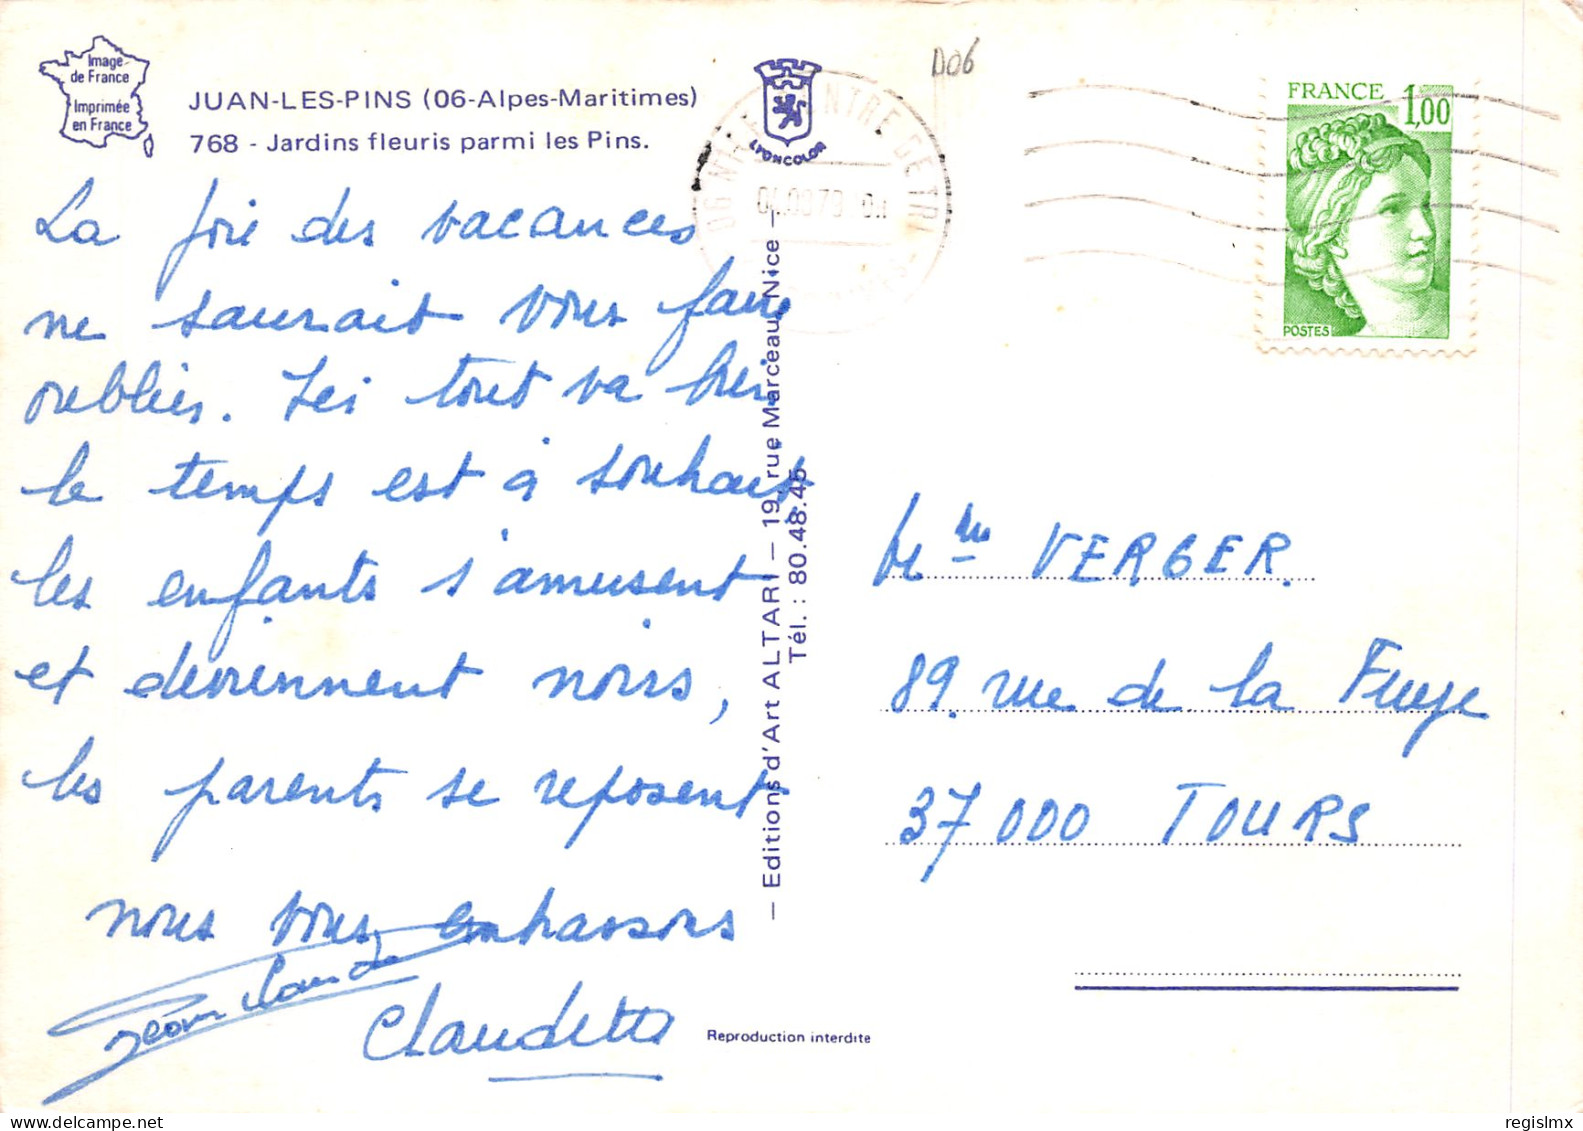 Image
de France
Imprimée
en France
JUAN-LES-PINS (06-Alpes-Maritimes)
768 - Jardins fleuris parmi les Pins.
La joie des vacances
ne saurait vous faire
oublier. Ici tout va bien
le temps est à souhait,
les enfants s'amusent
et deviennent noirs,
les parents se reposent
nous vous embrassons
Jean Claude
Claudette
LYONCOLOR
— Editions d'Art ALTARI — 19, rue Marceau, Nice —
Tél. : 80.48.45
Reproduction interdite
D06
06 NICE CENTRE DE TRI
FRANCE 1,00
POSTES
Mme VERGER.
89. rue de la Fuye
37000 TOURS
regislmx